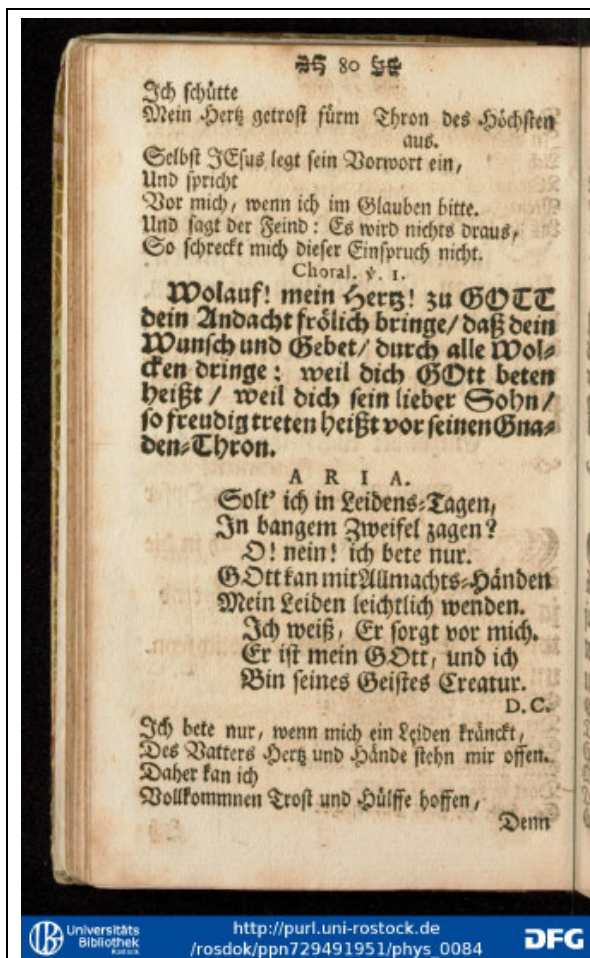 80
Ich schütte
Mein Hertz getrost fürm Thron des Höchsten
aus.
Selbst JEsus legt sein Vorwort ein,
Und spricht
Vor mich, wenn ich im Glauben bitte.
Und sagt der Feind: Es wird nichts draus,
So schreckt mich dieser Einspruch nicht.
Choral. v. 1.
Wolauf! mein Hertz! zu GOTT
dein Andacht frölich bringe/ daß dein
Wunsch und Gebet/ durch alle Wol-
cken dringe: weil dich GOtt beten
heißt / weil dich sein lieber Sohn/
so freudig treten heißt vor seinen Gna-
den-Thron.
A R I A.
Solt' ich in Leidens-Tagen,
In bangem Zweifel zagen?
O! nein! ich bete nur.
GOtt kan mit Allmachts-Händen
Mein Leiden leichtlich wenden.
Ich weiß, Er sorgt vor mich.
Er ist mein GOtt, und ich
Bin seines Geistes Creatur.
D.C.
Ich bete nur, wenn mich ein Leiden kränckt,
Des Vatters Hertz und Hände stehn mir offen.
Daher kan ich
Vollkommnen Trost und Hülffe hoffen,
Denn
Universitäts
Bibliothek
Rostock
http://purl.uni-rostock.de
/rosdok/ppn729491951/phys_0084
DFG